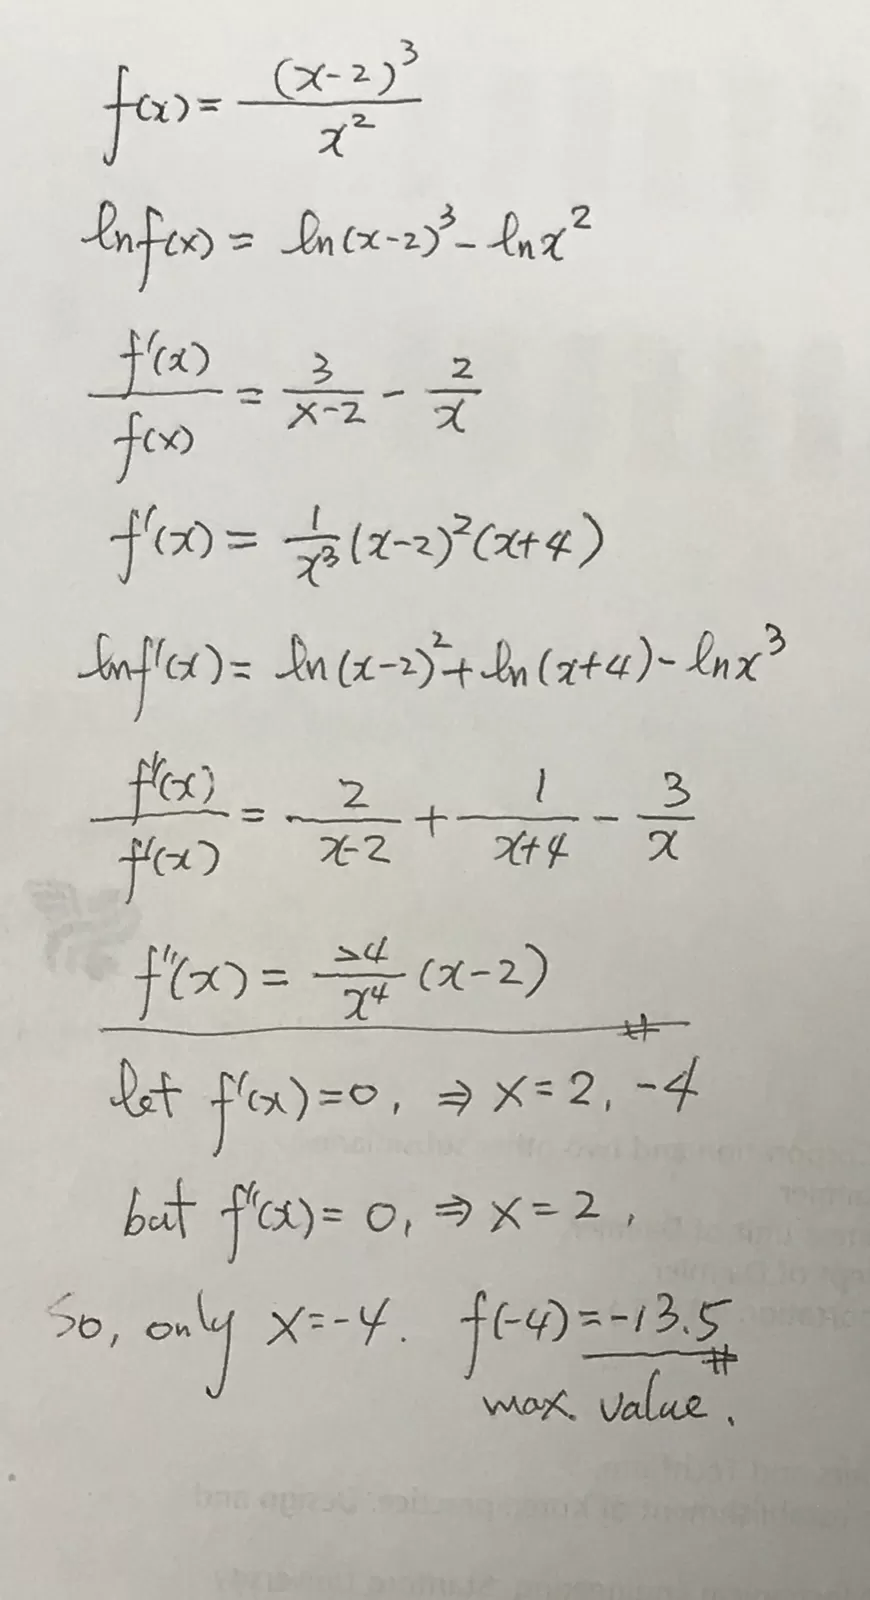 f(x) = (x-2)³ / x²
ln f(x) = ln(x-2)³ - ln x²
f'(x) / f(x) = 3/(x-2) - 2/x
f'(x) = 1/x³ (x-2)²(x+4)
ln f'(x) = ln(x-2)² + ln(x+4) - ln x³
f''(x) / f'(x) = 2/(x-2) + 1/(x+4) - 3/x
f''(x) = 24/x⁴ (x-2)
let f'(x)=0, ⇒ x=2, -4
but f''(x)=0, ⇒ x=2,
So, only x=-4. f(-4)=-13.5
max. value.